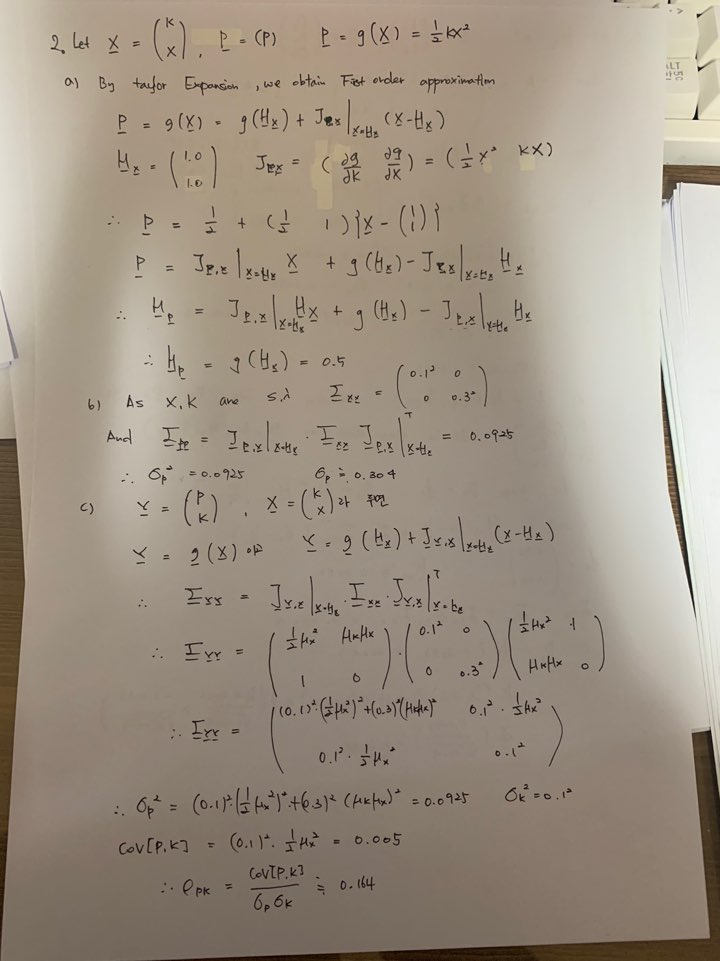 2. Let X = (K X), P = (P) P = g(X) = 1/2 KX²
a) By taylor Expansion, we obtain First order approximation
P = g(X) = g(μx) + J_PX|x=μx (X-μx)
μx = (1.0 1.0) J_PX = (∂g/∂K ∂g/∂X) = (1/2 X² KX)
∴ P = 1/2 + (1/2 1){X - (1 1)}
P = J_P,X|x=μx X + g(μx) - J_PX|x=μx μx
∴ μP = J_P,X|x=μx μx + g(μx) - J_P,X|x=μx μx
∴ μP = g(μx) = 0.5
b) As X, K are s.i Σxx = (0.1² 0 0 0.3²)
And Σpp = J_P,X|x=μx · Σxx J_P,X|ᵀx=μx = 0.0925
∴ σp² = 0.0925 σp ≒ 0.304
c) Y = (P K), X = (K X)라 두면
Y = g(X) 이고 Y = g(μx) + J_Y,X|x=μx (X-μx)
∴ ΣYY = J_Y,X|x=μx · Σxx · J_Y,X|ᵀx=μx
∴ ΣYY = (1/2 μx² μKμx 1 0) · (0.1² 0 0 0.3²) (1/2 μx² 1 μKμx 0)
∴ ΣYY = ((0.1)²·(1/2 μx²)²+(0.3)²(μKμx)² 0.1² · 1/2 μx² 0.1² · 1/2 μx² 0.1²)
∴ σp² = (0.1)²·(1/2 μx²)²+(0.3)² (μKμx)² = 0.0925 σK² = 0.1²
COV[P,K] = (0.1)² · 1/2 μx² = 0.005
∴ ρPK = COV[P,K] / σpσK ≒ 0.164